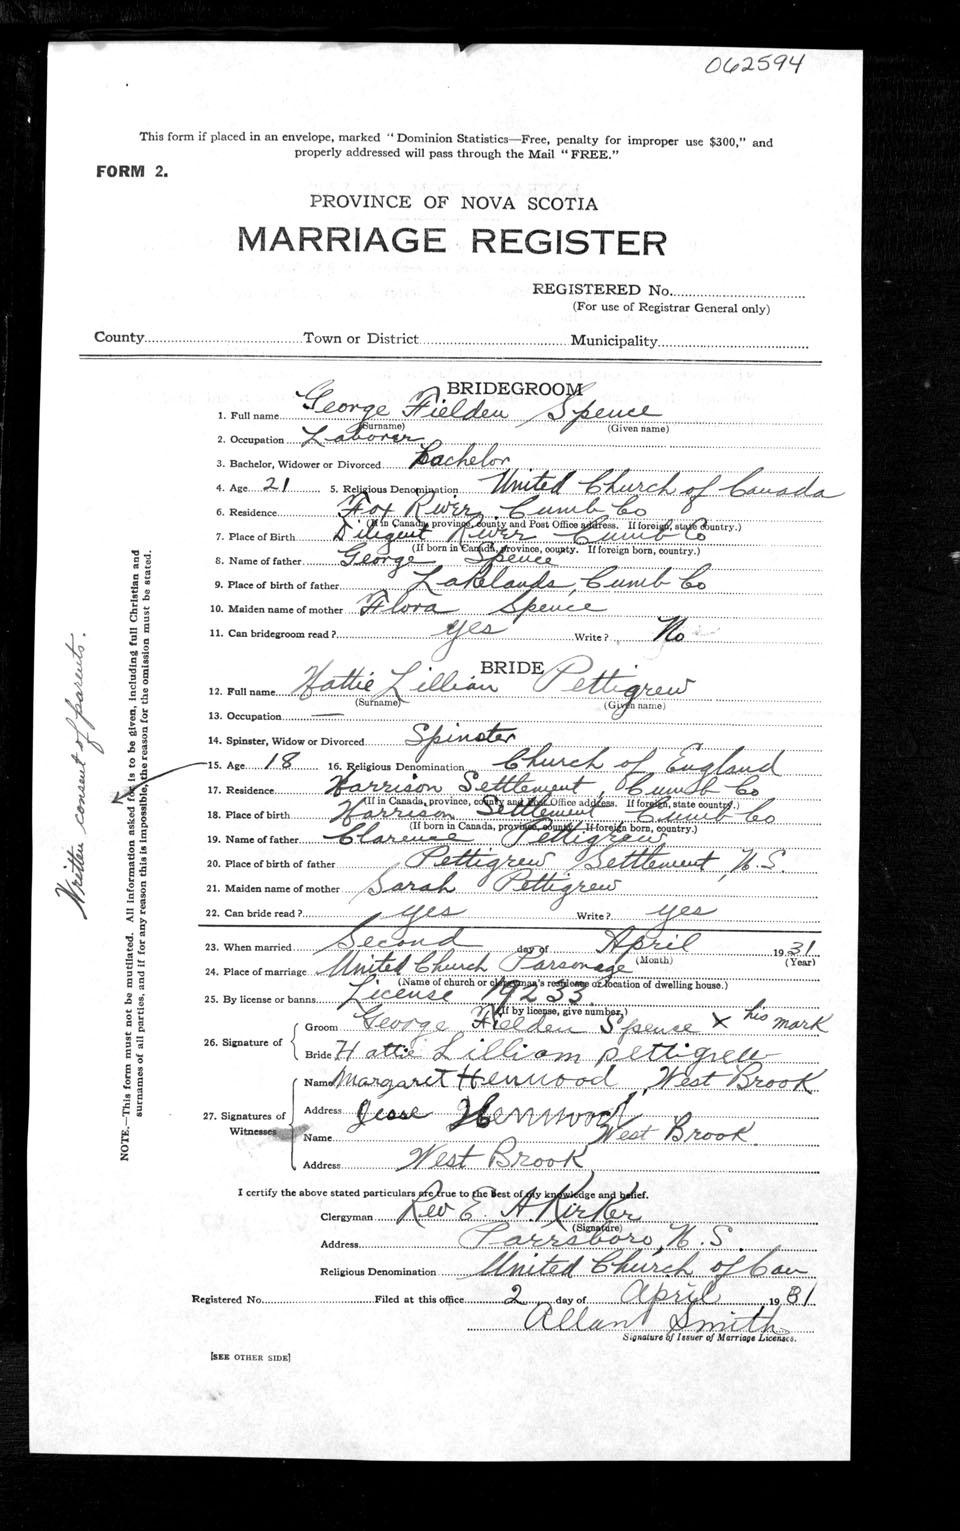 062594
This form if placed in an envelope, marked "Dominion Statistics—Free, penalty for improper use $300," and
properly addressed will pass through the Mail "FREE."
FORM 2.
PROVINCE OF NOVA SCOTIA
MARRIAGE REGISTER
REGISTERED No.
(For use of Registrar General only)
County Town or District Municipality
BRIDEGROOM
1. Full name George Fielden Spence
(Surname) (Given name)
2. Occupation Laborer
3. Bachelor, Widower or Divorced Bachelor
4. Age 21 5. Religious Denomination United Church of Canada
6. Residence Fox River, Cumb Co
(If in Canada, province, county and Post Office address. If foreign, state country.)
7. Place of Birth Diligent River Cumb Co
(If born in Canada, province, county. If foreign born, country.)
8. Name of father George Spence
9. Place of birth of father Lakelands, Cumb Co
10. Maiden name of mother Flora Spence
11. Can bridegroom read? yes Write? No
BRIDE
12. Full name Hattie Lillian Pettigrew
(Surname) (Given name)
13. Occupation —
14. Spinster, Widow or Divorced Spinster
15. Age 18 16. Religious Denomination Church of England
17. Residence Harrison Settlement, Cumb Co
(If in Canada, province, county and Post Office address. If foreign, state country.)
18. Place of birth Harrison Settlement Cumb Co
(If born in Canada, province, county. If foreign born, country.)
19. Name of father Clarence Pettigrew
20. Place of birth of father Pettigrew Settlement, N.S.
21. Maiden name of mother Sarah Pettigrew
22. Can bride read? yes Write? yes
23. When married Second day of April 1931
(Month) (Year)
24. Place of marriage United Church Parsonage
(Name of church or clergyman's residence or location of dwelling house.)
25. By license or banns License 19233
(If by license, give number.)
26. Signature of Groom George Fielden Spence X his mark
Bride Hattie Lilliam pettigrew
27. Signatures of Witnesses
Name Margaret Henwood, West Brook
Address Jesse Henwood
West Brook.
Name
Address West Brook
I certify the above stated particulars are true to the best of my knowledge and belief.
Clergyman Rev E. A. Kirker
(Signature)
Address Parrsboro, N.S.
Religious Denomination United Church of Can
Registered No. Filed at this office 2 day of April 1931
Allan Smith
Signature of Issuer of Marriage Licenses.
[SEE OTHER SIDE]
NOTE.—This form must not be mutilated. All information asked for is to be given, including full Christian and
surnames of all parties, and if for any reason this is impossible, the reason for the omission must be stated.
Written consent of parents.